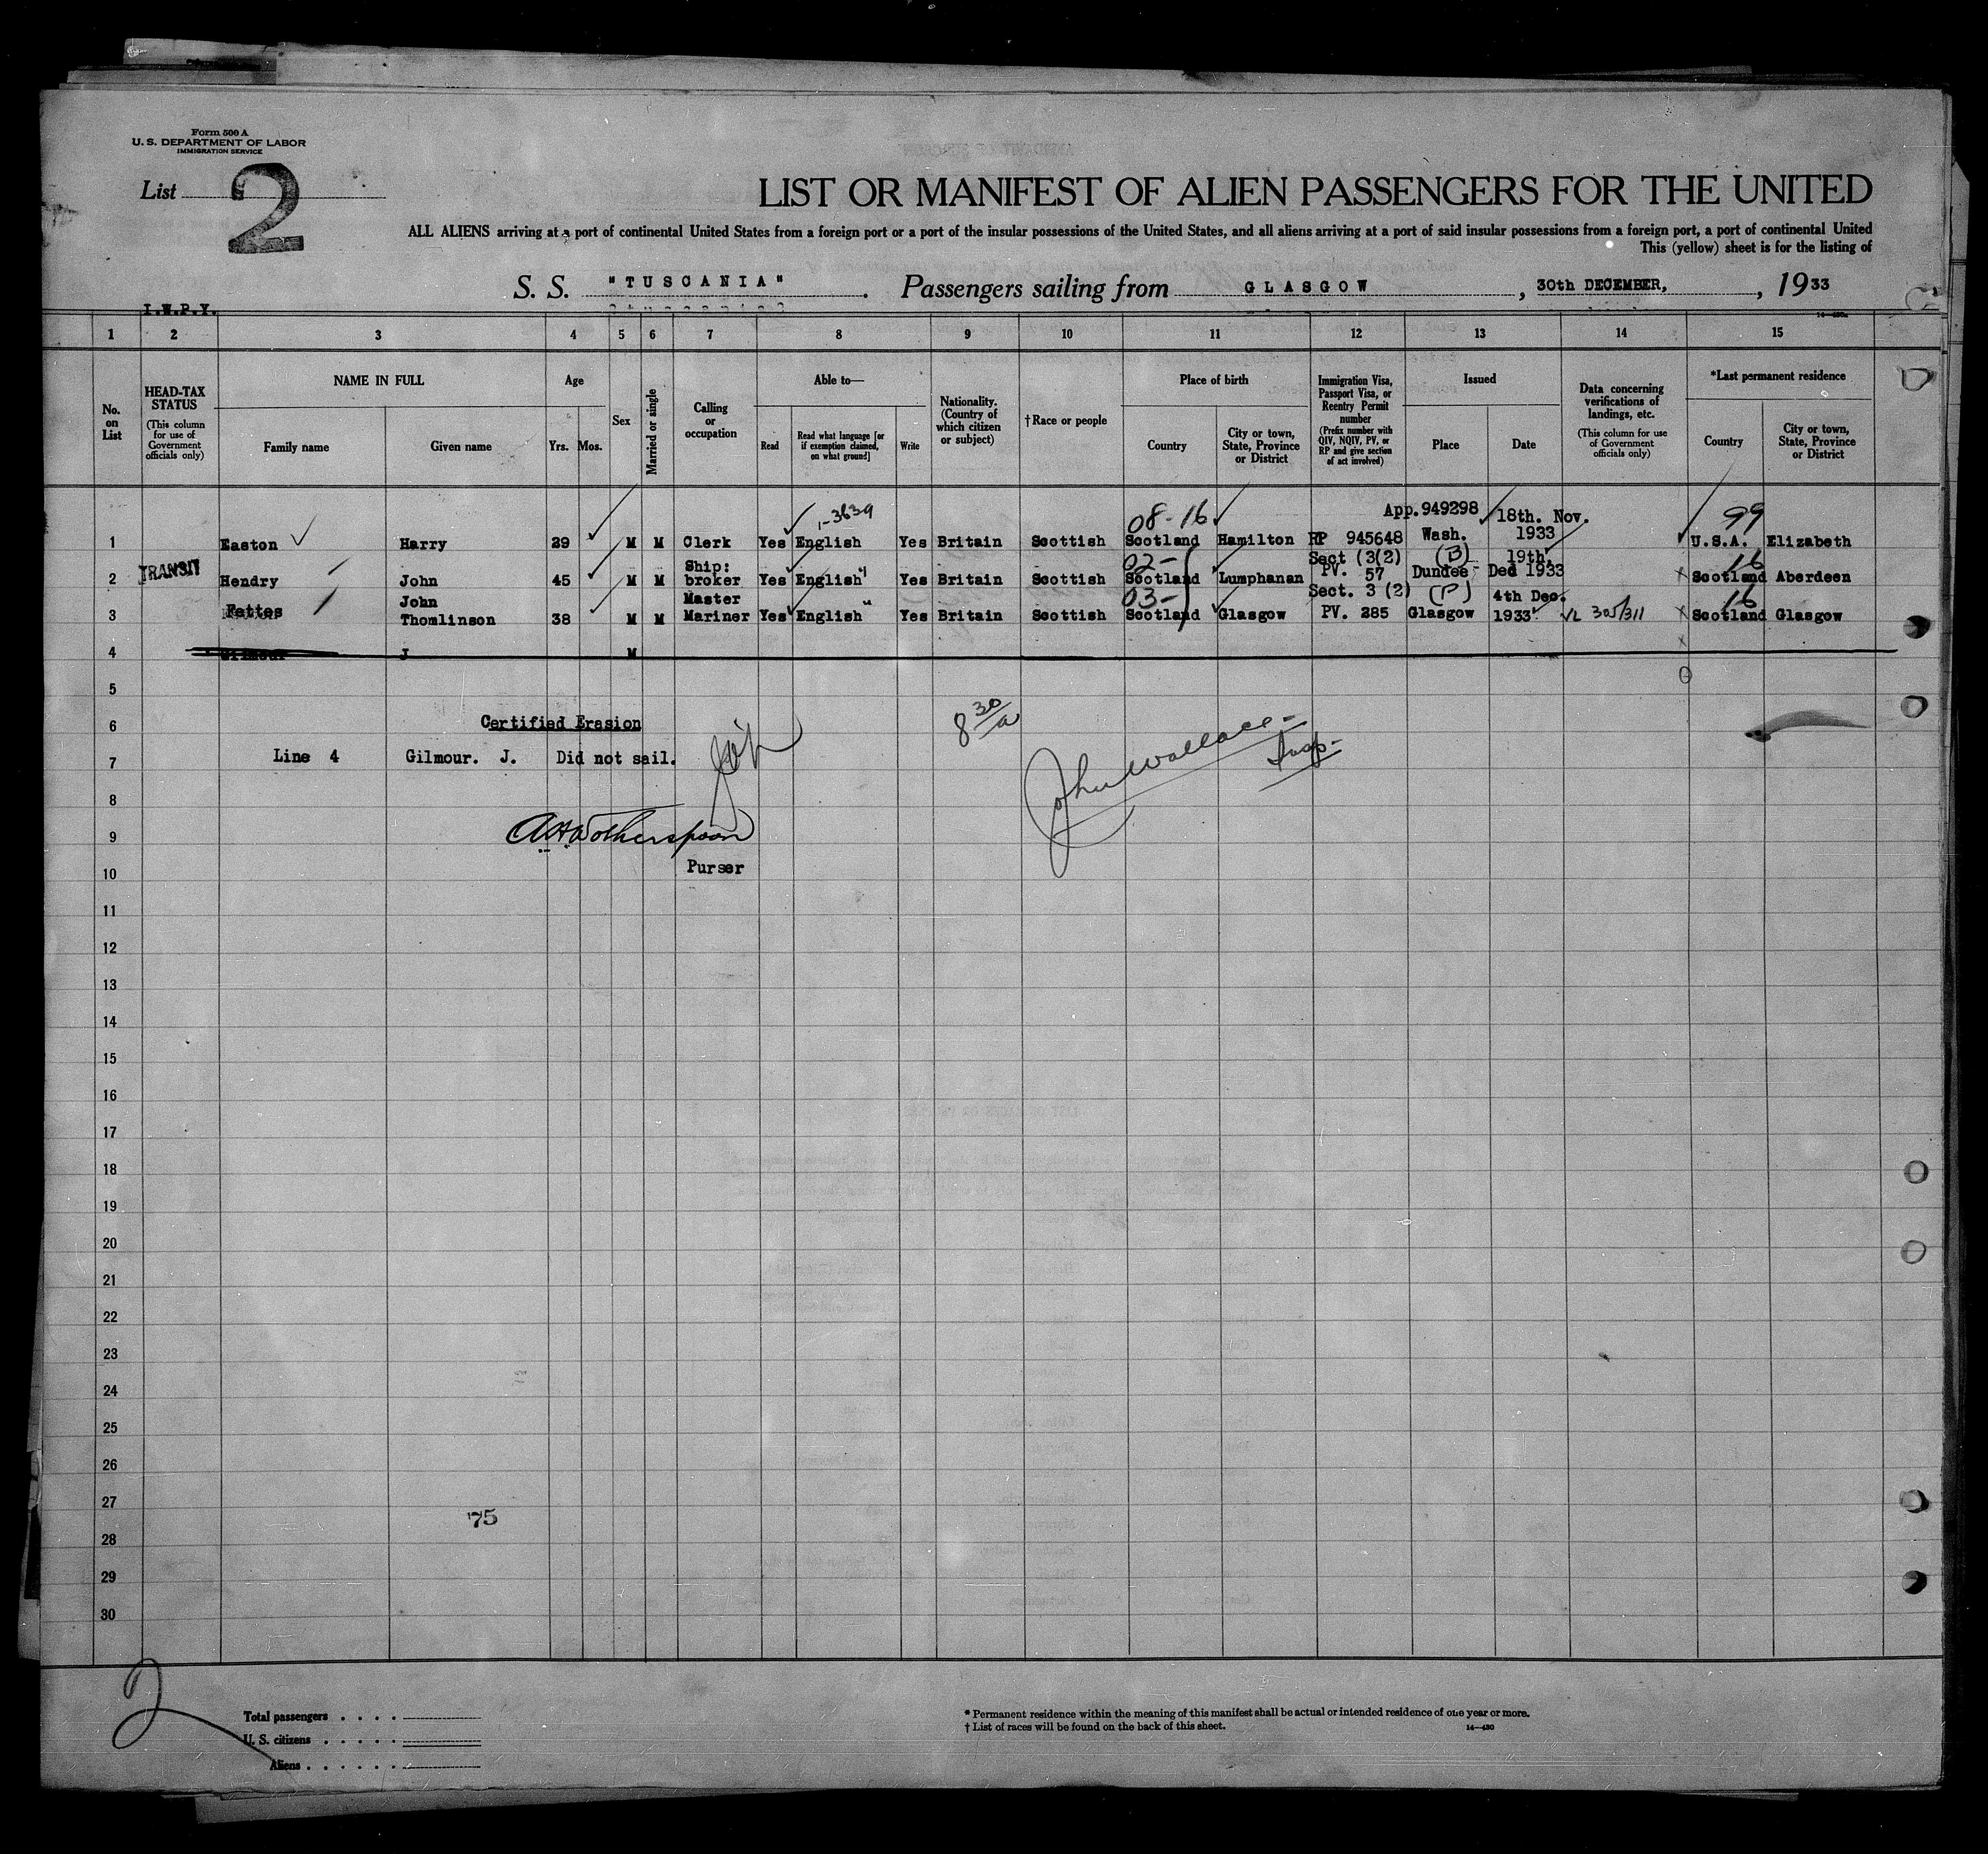 Form 500 A
U. S. DEPARTMENT OF LABOR
IMMIGRATION SERVICE
List 2
LIST OR MANIFEST OF ALIEN PASSENGERS FOR THE UNITED
ALL ALIENS arriving at a port of continental United States from a foreign port or a port of the insular possessions of the United States, and all aliens arriving at a port of said insular possessions from a foreign port, a port of continental United
This (yellow) sheet is for the listing of
S. S. "TUSCANIA" . Passengers sailing from GLASGOW , 30th DECEMBER, , 1933
I.W.P.Y.
14—430a
1 2 3 4 5 6 7 8 9 10 11 12 13 14 15
No. on List
HEAD-TAX STATUS
(This column for use of Government officials only)
NAME IN FULL
Family name Given name
Age
Yrs. Mos.
Sex
Married or single
Calling or occupation
Able to—
Read Read what language [or if exemption claimed, on what ground] Write
Nationality. (Country of which citizen or subject)
†Race or people
Place of birth
Country City or town, State, Province or District
Immigration Visa, Passport Visa, or Reentry Permit number
(Prefix number with QIV, NQIV, PV, or RP and give section of act involved)
Issued
Place Date
Data concerning verifications of landings, etc.
(This column for use of Government officials only)
*Last permanent residence
Country City or town, State, Province or District
1-3639 08-16 App.949298 18th. Nov. 99
1 Easton Harry 29 M M Clerk Yes English Yes Britain Scottish Scotland Hamilton RP 945648 Wash. 1933 U.S.A. Elizabeth
Ship: 02- Sect (3(2) (B) 19th. 16
2 TRANSIT Hendry John 45 M M broker Yes English " Yes Britain Scottish Scotland Lumphanan PV. 57 Dundee Ded 1933 Scotland Aberdeen
John Master 03- Sect. 3 (2) (P) 4th Dec. 16
3 Fettes Thomlinson 38 M M Mariner Yes English " Yes Britain Scottish Scotland Glasgow PV. 285 Glasgow 1933 VL 305/311 Scotland Glasgow
4 Gilmour J M
5
6 Certified Erasion 8 30/a
7 Line 4 Gilmour. J. Did not sail. John Wallace Insp-
8
9 A.H.Wotherspoon
10 Purser
11
12
13
14
15
16
17
18
19
20
21
22
23
24
25
26
27 75
28
29
30
2
Total passengers . . . .
U. S. citizens . . . . .
Aliens . . . . . .
* Permanent residence within the meaning of this manifest shall be actual or intended residence of one year or more.
† List of races will be found on the back of this sheet. 14—430